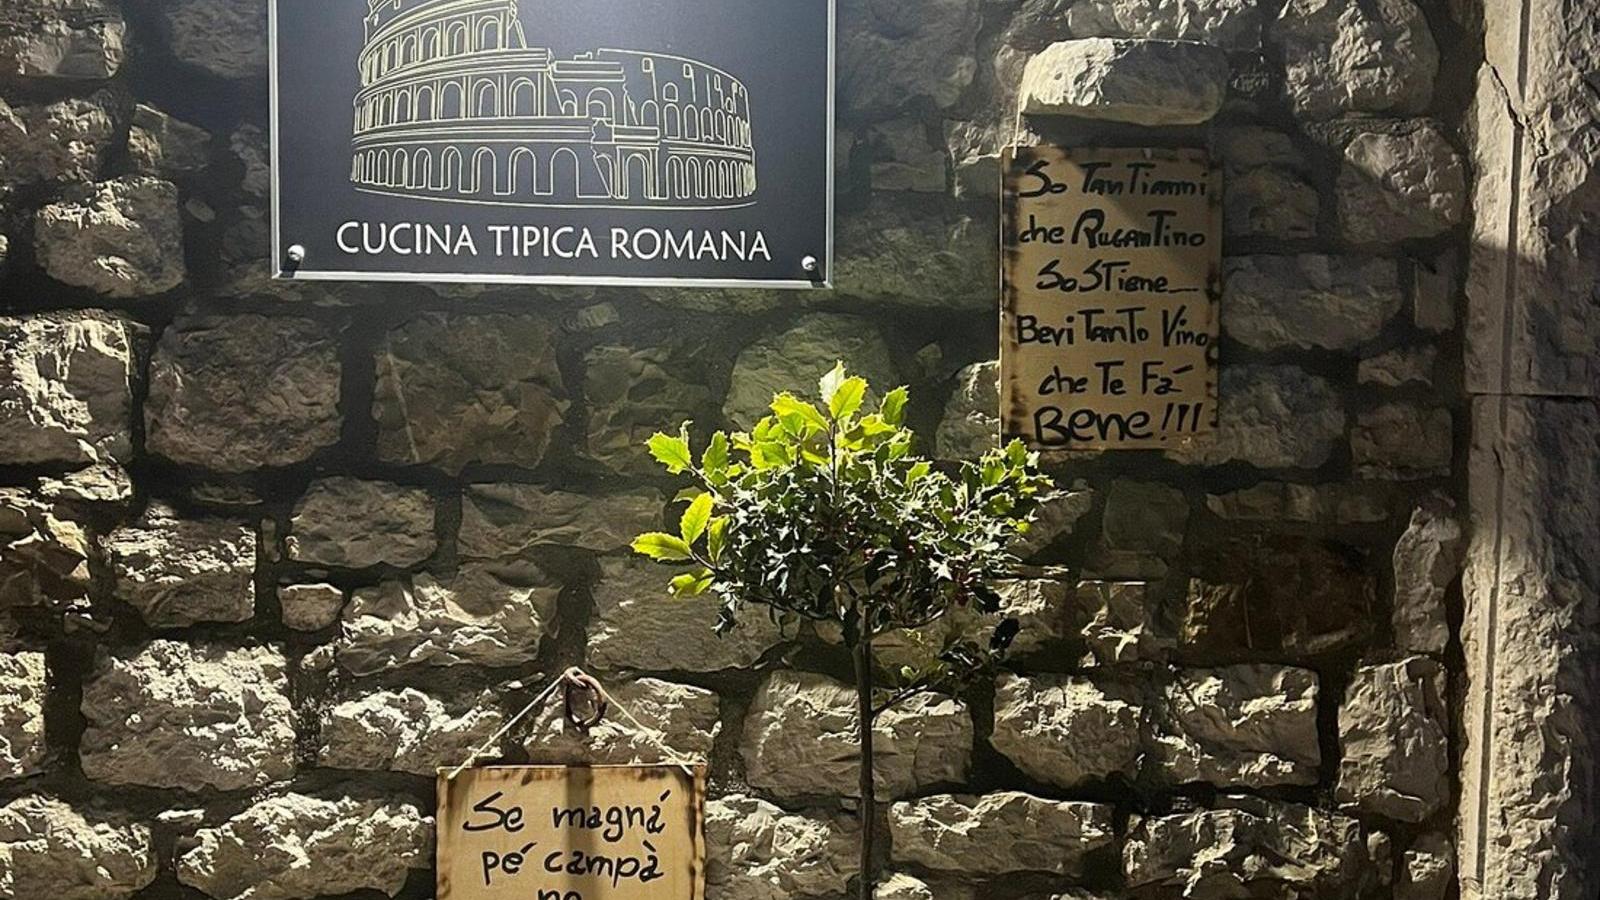 CUCINA TIPICA ROMANA
So TanTianni
che RuganTino
SoSTiene_
Bevi TanTo Vino
che Te Fá
Bene!!!
Se magná
pé campà